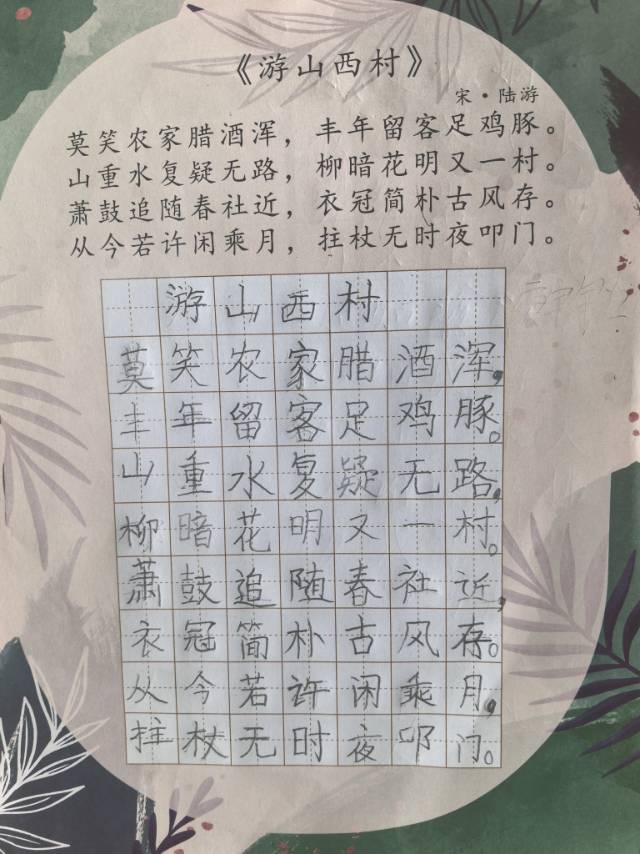 《游山西村》
宋·陆游
莫笑农家腊酒浑，丰年留客足鸡豚。
山重水复疑无路，柳暗花明又一村。
萧鼓追随春社近，衣冠简朴古风存。
从今若许闲乘月，拄杖无时夜叩门。
游山西村
莫笑农家腊酒浑，
丰年留客足鸡豚。
山重水复疑无路，
柳暗花明又一村。
萧鼓追随春社近，
衣冠简朴古风存。
从今若许闲乘月，
拄杖无时夜叩门。